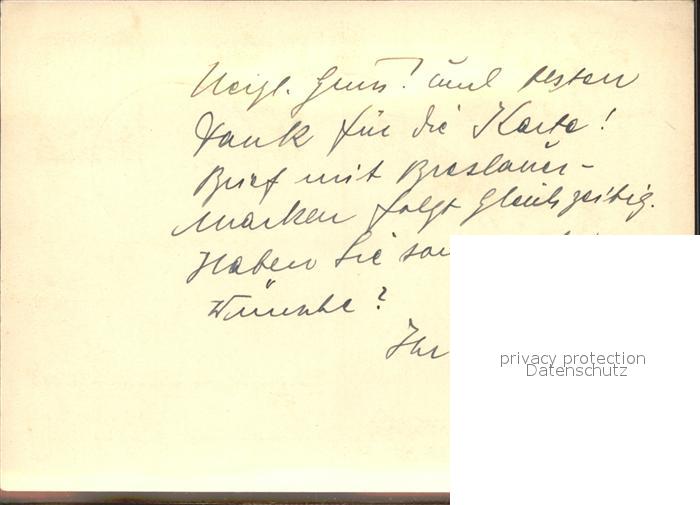 Herzl. Gruss! und besten
Dank für die Karte!
Brief mit Breslauer-
marken folgt gleichzeitig.
Haben Sie
Wünsche?
Ihr
privacy protection
Datenschutz